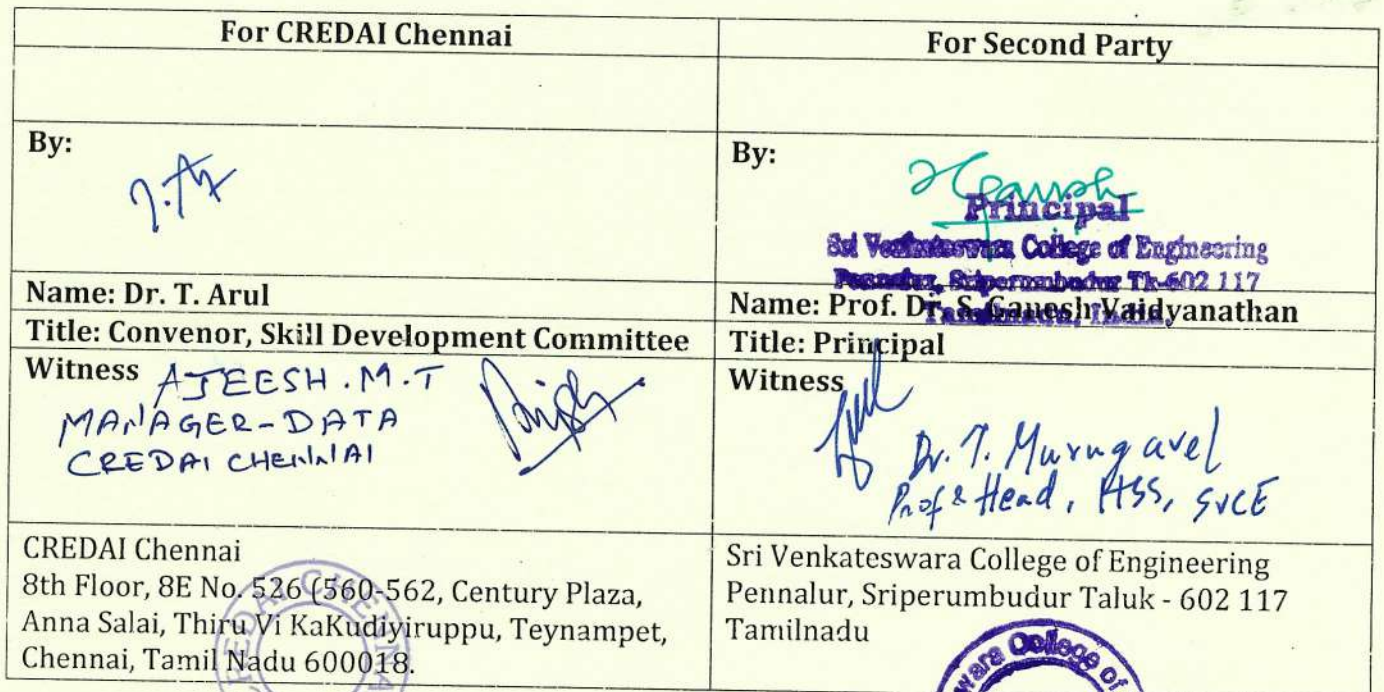 For CREDAI Chennai
For Second Party
By:
By:
Principal
Sri Venkateswara College of Engineering
Pennalur, Sriperumbudur Tk-602 117
Tamilnadu, India
Name: Dr. T. Arul
Name: Prof. Dr. S. Ganesh Vaidyanathan
Title: Convenor, Skill Development Committee
Title: Principal
Witness AJEESH.M.T
MANAGER-DATA
CREDAI CHENNAI
Witness
Dr. T. Murugavel
Prof & Head, HSS, SVCE
CREDAI Chennai
8th Floor, 8E No. 526 (560-562, Century Plaza,
Anna Salai, Thiru Vi KaKudiyiruppu, Teynampet,
Chennai, Tamil Nadu 600018.
Sri Venkateswara College of Engineering
Pennalur, Sriperumbudur Taluk - 602 117
Tamilnadu
CREDAI CHENNA
wara College of